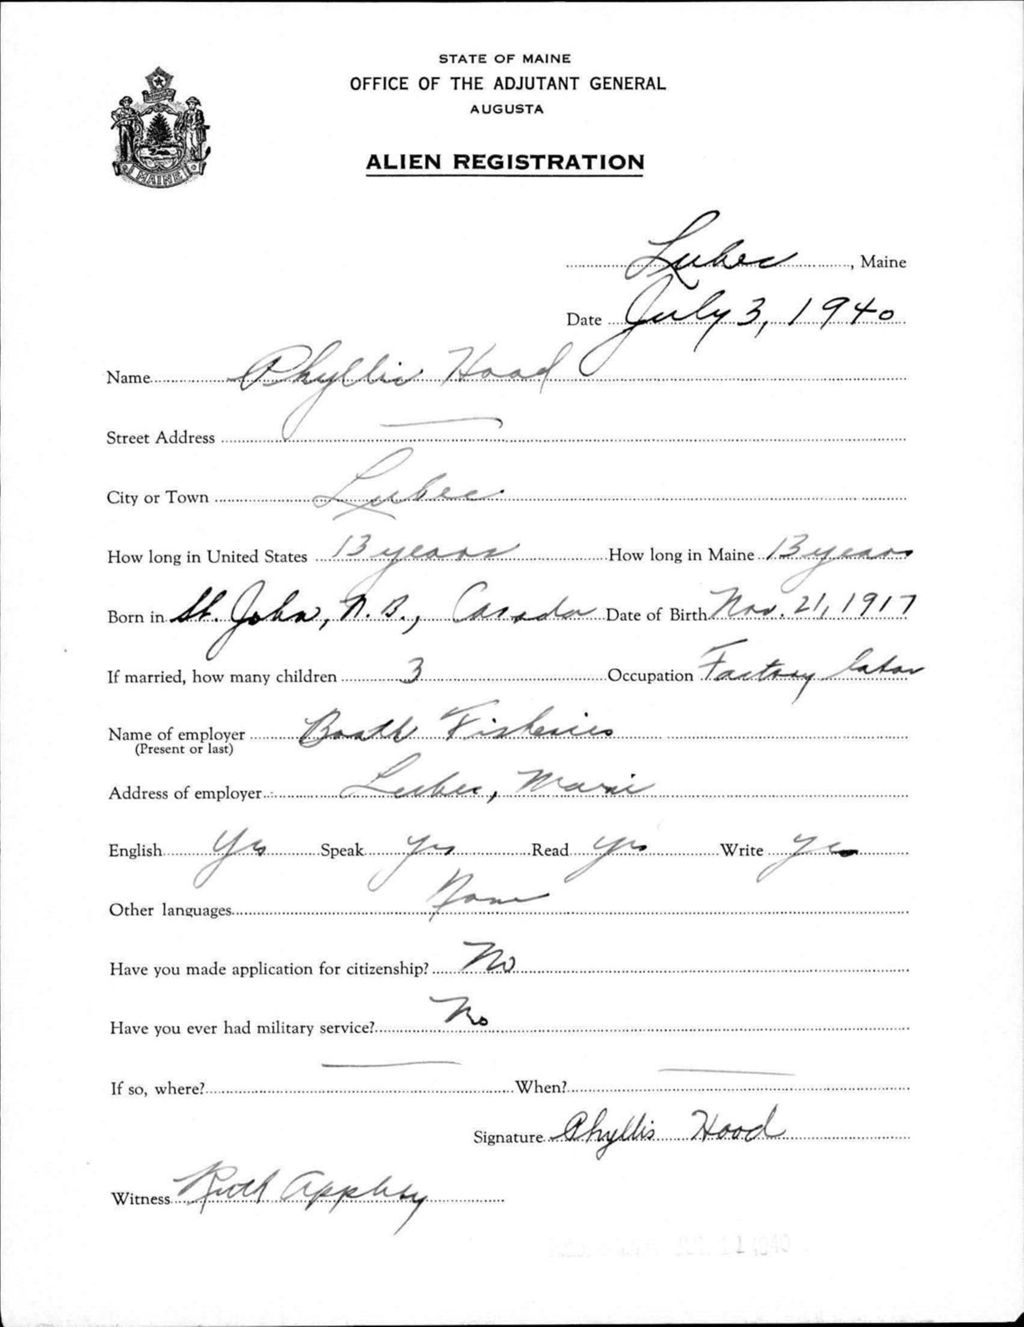 STATE OF MAINE
OFFICE OF THE ADJUTANT GENERAL
AUGUSTA
ALIEN REGISTRATION
MAINE
Lubec, Maine
Date July 3, 1940
Name Phyllis Hood
Street Address —
City or Town Lubec
How long in United States 13 years How long in Maine 13 years
Born in St. John, N.B., Canada Date of Birth Nov. 21, 1917
If married, how many children 3 Occupation Factory labor
Name of employer Booth Fisheries
(Present or last)
Address of employer Lubec, Maine
English Yes Speak Yes Read Yes Write Yes
Other languages None
Have you made application for citizenship? No
Have you ever had military service? No
If so, where? — When? —
Signature Phyllis Hood
Witness Ruth Appleby